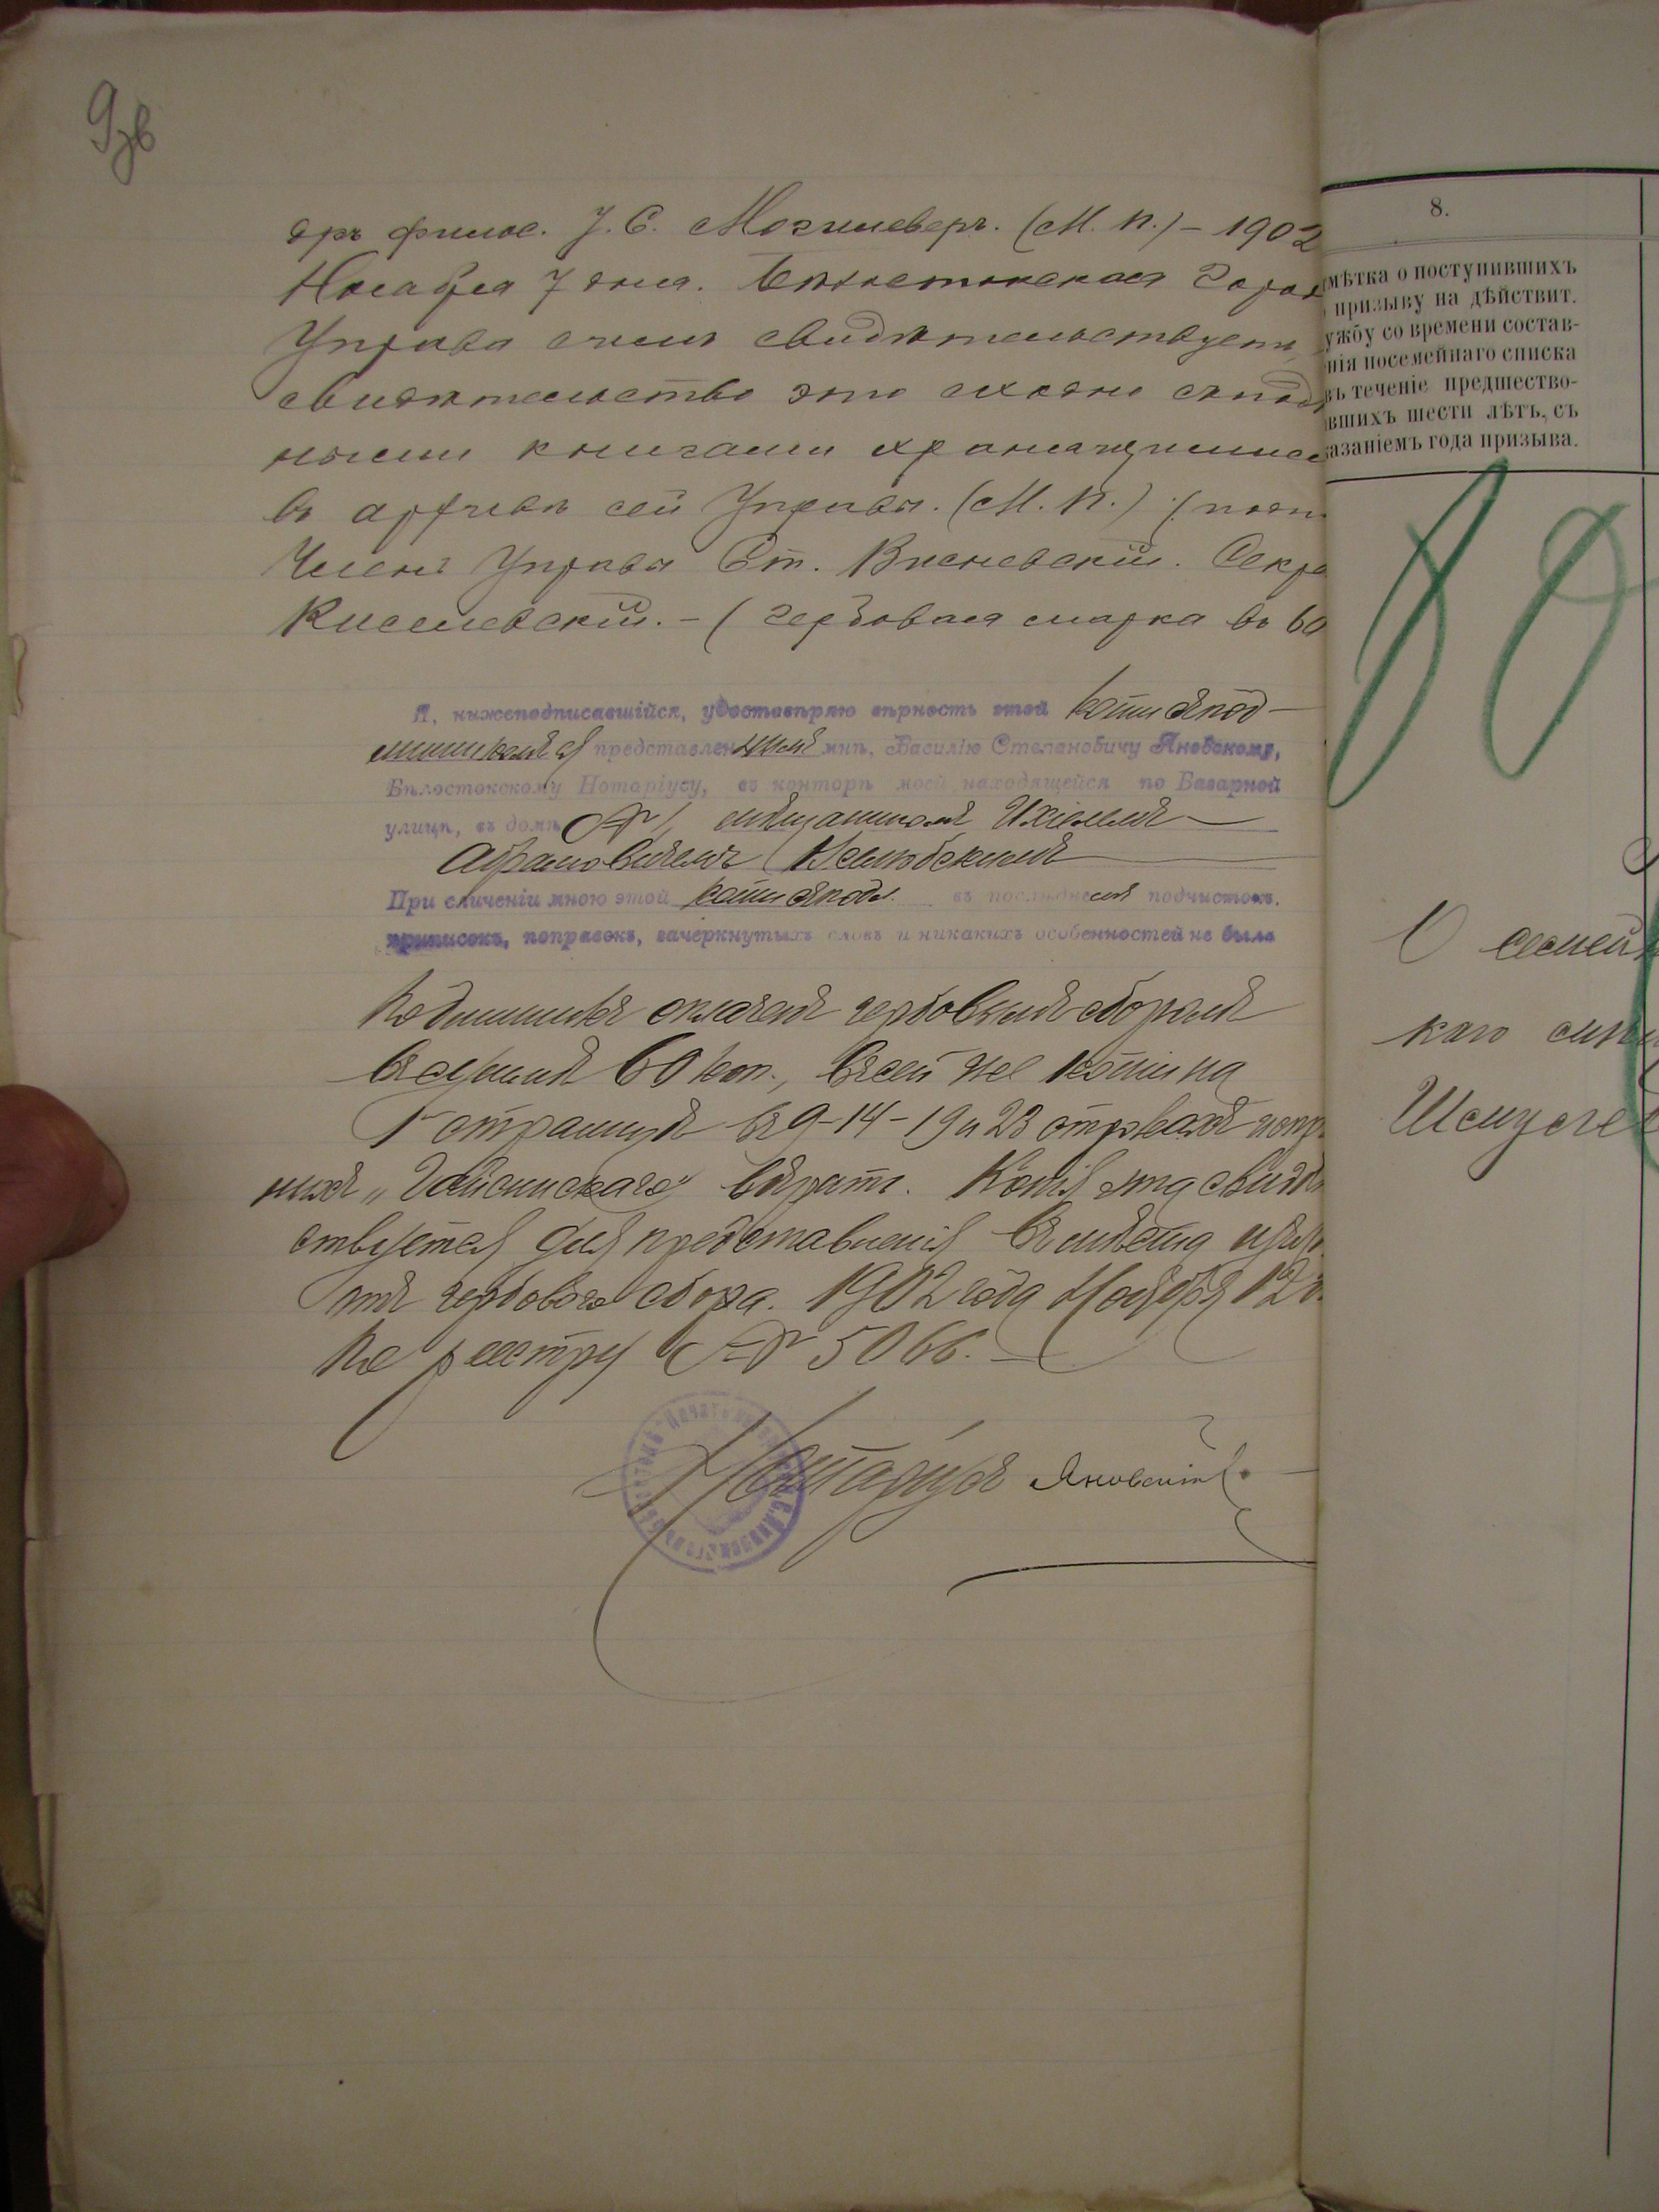 дръ филос. I. С. Могилеверъ. (М. П.) – 1902
Ноября 7 дня. Бѣлостокская Город
Управа симъ свидѣтельствуетъ
свидѣтельство это сходно съ под
ными книгами хранящимися
въ архивѣ сей Управы. (М. П.) (подп
Членъ Управы Ст. Висневскій. Секре
Киселевскій. – (гербовая марка въ 60
Я, нижеподписавшійся, удостовѣряю вѣрность этой копіи съ под-
линникомъ ея представленнымъ мнѣ, Василію Степановичу Яновскому,
Бѣлостокскому Нотаріусу, въ конторѣ моей находящейся по Базарной
улицѣ, въ домѣ № мѣщаниномъ Ихіелемъ
Абрамовичемъ
При сличеніи мною этой копіи съ подл. въ послѣднемъ подчистокъ,
приписокъ, поправокъ, зачеркнутыхъ словъ и никакихъ особенностей не было
Подлинникъ оплаченъ гербовымъ сборомъ
въ суммѣ 60 коп., въ сей же копіи на
1 страницѣ въ 9-14-19 и 23 строкахъ
вѣрить. Копія эта свидѣ
ствуется для представленія въ мѣста изъя
тыя гербоваго сбора. 1902 года Ноября 12 д.
По реестру № 5066.
Нотаріусъ Яновскій
8.
мѣтка о поступившихъ
призыву на дѣйствит.
ужбу со времени состав-
нія посемейнаго списка
въ теченіе предшество-
вшихъ шести лѣтъ, съ
казаніемъ года призыва.
О семей
каго